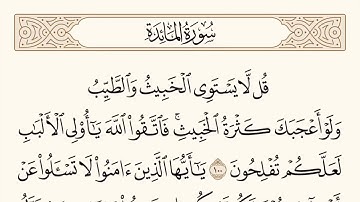 سُورَةُ المَائِدَة
قُل لَّا يَسْتَوِى ٱلْخَبِيثُ وَٱلطَّيِّبُ
وَلَوْ أَعْجَبَكَ كَثْرَةُ ٱلْخَبِيثِ ۚ فَٱتَّقُوا۟ ٱللَّهَ يَـٰٓأُو۟لِى ٱلْأَلْبَـٰبِ
لَعَلَّكُمْ تُفْلِحُونَ ١٠٠ يَـٰٓأَيُّهَا ٱلَّذِينَ ءَامَنُوا۟ لَا تَسْـَٔلُوا۟ عَنْ